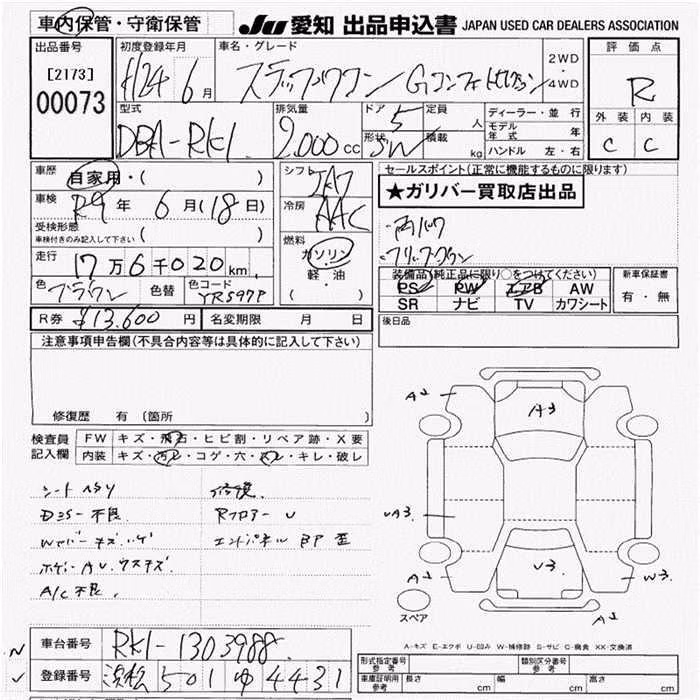 車内保管・守衛保管
JU 愛知 出品申込書 JAPAN USED CAR DEALERS ASSOCIATION
出品番号
[2173]
00073
初度登録年月
H24 6月
車名・グレード
ステップワゴン Gコンフォートセレクション
2WD
・
4WD
評価点
R
外装 内装
C C
型式
DBA-RK1
排気量
2,000 cc
ドア 5
形状 SW
定員 人
積載 kg
ディーラー・並行
モデル年式 年
ハンドル 左・右
車歴
自家用・( )
車検
R9年 6月(18日)
受検形態
車検付きのみ記入して下さい ( )
走行
17万6千020km
色
ブラウン
色替
色コード
YR597P
シフト
IA7
冷房
AAC
燃料
ガソリン
軽・油
( )
セールスポイント(正常に機能するものに限ります)
★ガリバー買取店出品
両パワ
フリップダウン
装備品(純正品に限り○をつけてください)
PS PW エアB AW
SR ナビ TV カワシート
新車保証書
有・無
R券 ¥13,600円
名変期限 月 日
後日品
注意事項申告欄(不具合内容等は具体的に記入して下さい)
修復歴 有(箇所
検査員
記入欄
FW キズ・飛石・ヒビ割・リペア跡・X要
内装 キズ・汚レ・コゲ・穴・スレ・キレ・破レ
シートヘタリ
DミラーI不良
Wカバーキズ、ハゲ
ボデーAU、ウスキズ
A/C不良、
修復、
Rフロアー U
エンドパネル BP 歪
A2
A3
UA3
A2
U3
W3
A2
スペア
A-キズ E-エクボ U-凹み W-補修跡 S-サビ C-腐食 XX-交換済
車台番号
RK1-1303988
登録番号
浜松 501 ゆ 4431
型式指定番号
参考
類別区分番号
参考
車庫証明用
参考
長さ cm
幅 cm
高さ cm